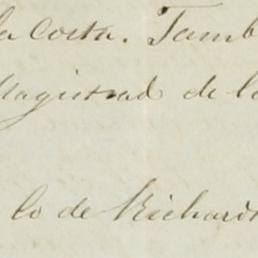 la Costa. Tamb
Magistrad de lo
lo de Richards